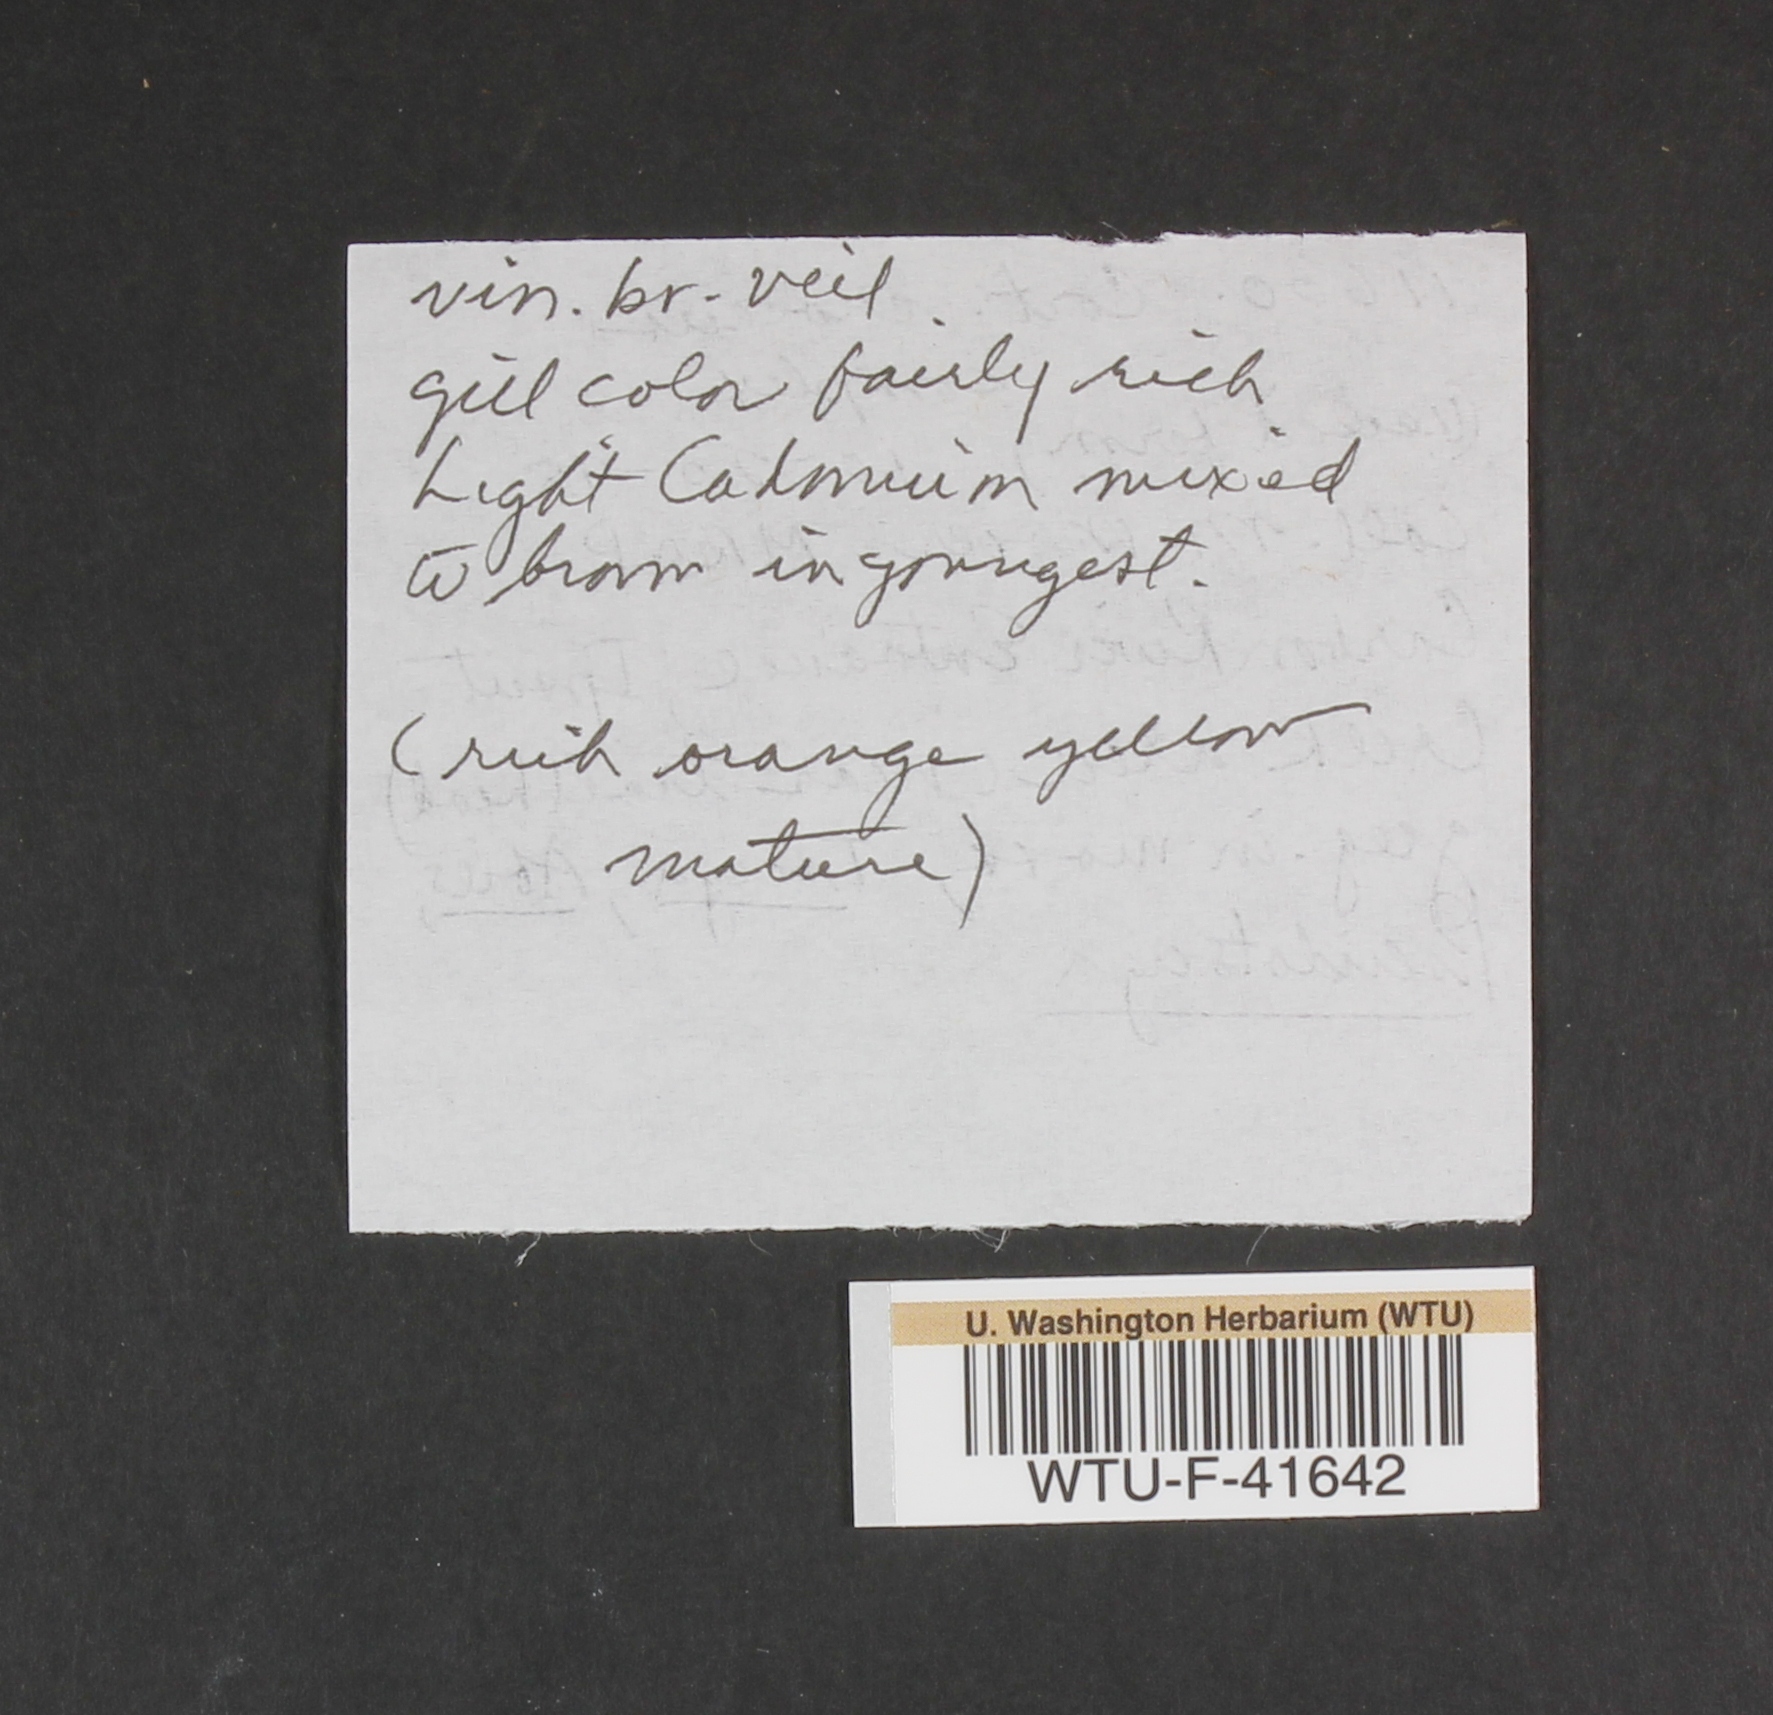 vin. br. veil.
gill color fairly rich
Light Cadmium mixed
w̄ brown in youngest.
(rich orange yellow
mature)
U. Washington Herbarium (WTU)
WTU-F-41642